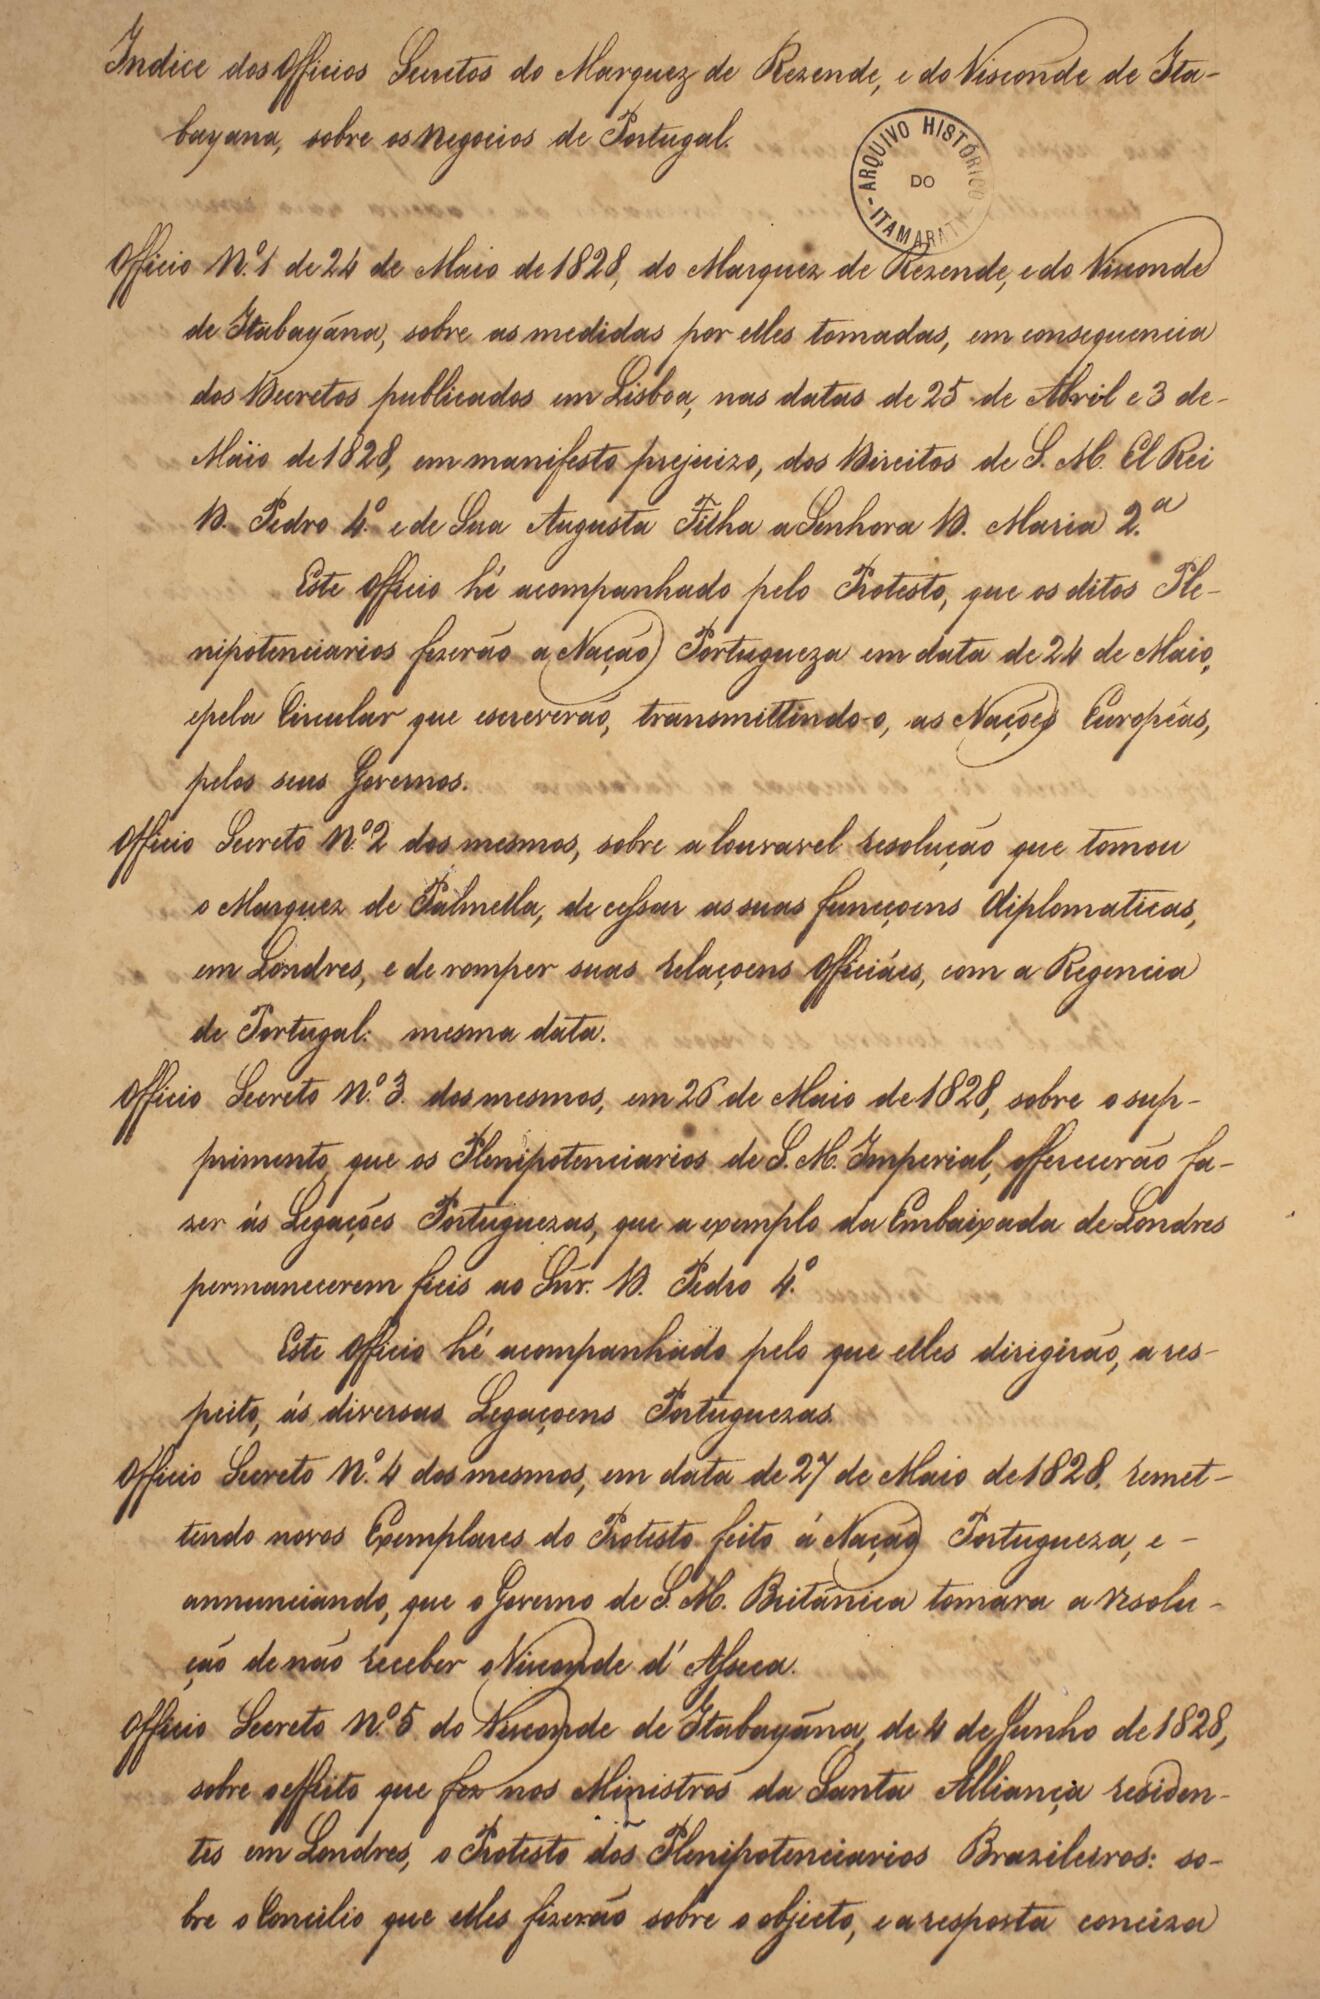 Indice dos Officios Secretos do Marquez de Rezende, e do Visconde de Ita-
bayana, sobre os Negocios de Portugal.
ARQUIVO HISTÓRICO
DO
- ITAMARATI -
Officio N.º 1 de 24 de Maio de 1828, do Marquez de Rezende, e do Visconde
de Itabayána, sobre as medidas por elles tomadas, em consequencia
dos Decretos publicados em Lisboa, nas datas de 25 de Abril e 3 de-
Maio de 1828, em manifesto prejuizo, dos Direitos de S. M. El Rei
D. Pedro 4.º e de Sua Augusta Filha a Senhora D. Maria 2.ª
Este Officio hé acompanhado pelo Protesto, que os ditos Ple-
nipotenciarios fizerão a Nação Portugueza em data de 24 de Maio,
e pela Circular que escreverão, transmittindo-o, as Nações Européas,
pelos seus Governos.
Officio Secreto N.º 2 dos mesmos, sobre a louvavel resolução que tomou
o Marquez de Palmella, de cessar as suas funcçoens diplomaticas,
em Londres, e de romper suas relaçoens officiáes, com a Regencia
de Portugal: mesma data.
Officio Secreto N.º 3. dos mesmos, em 26 de Maio de 1828, sobre o sup-
primento, que os Plenipotenciarios de S. M. Imperial, offerecerão fa-
zer ás Legações Portuguezas, que a exemplo da Embaixada de Londres
permanecerem fieis ao Snr. D. Pedro 4.º
Este Officio hé acompanhado pelo que elles dirigirão, a res-
peito, ás diversas Legaçoens Portuguezas.
Officio Secreto N.º 4 dos mesmos, em data de 27 de Maio de 1828, remet-
tendo novos Exemplares do Protesto feito á Nação Portugueza, e -
annunciando, que o Governo de S. M. Británica tomara a resolu-
ção de não receber o Visconde d' Asseca.
Officio Secreto N.º 5 do Visconde de Itabayána, de 4 de Junho de 1828,
sobre o effeito que fez nos Ministros da Santa Alliança residen-
tes em Londres, o Protesto dos Plenipotenciarios Brazileiros: so-
bre o Concilio que elles fizerão sobre o objecto, e a resposta conciza